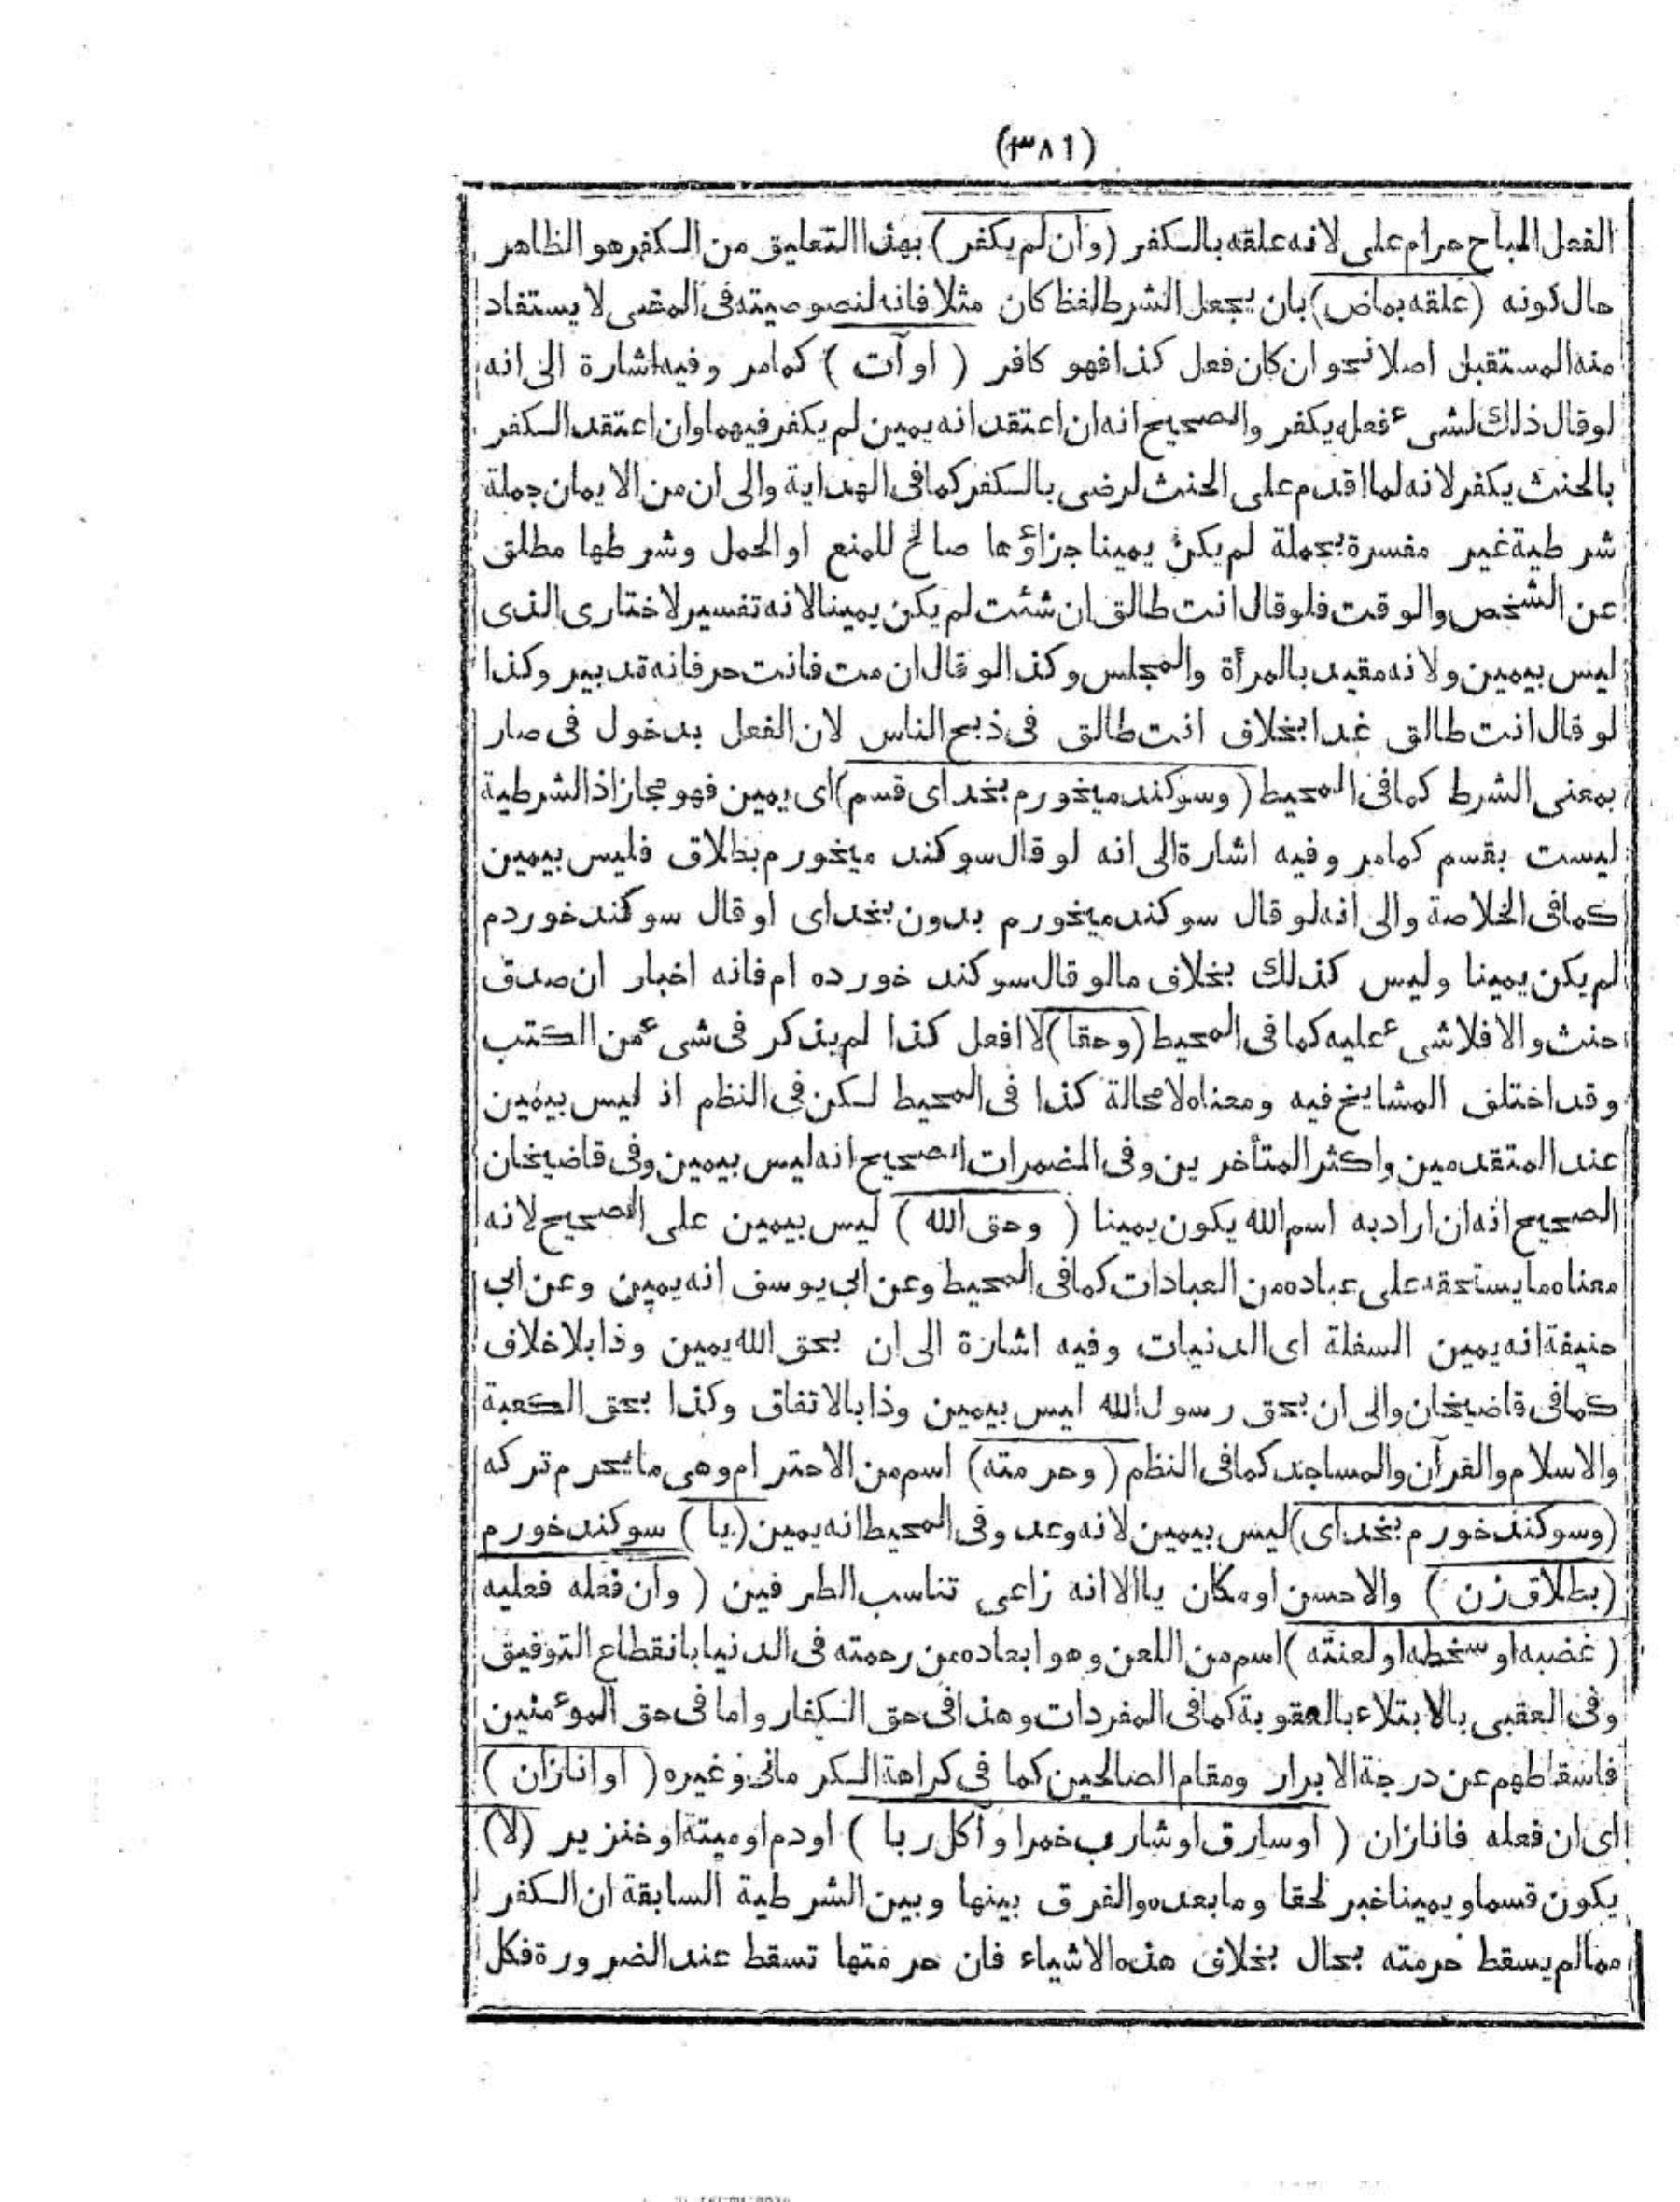 (٣٨١)
الفعل المباح حرام على لانه علقه بالكفر (وان لم يكفر) بهذا التعليق من الكفر هو الظاهر
حال كونه (علقه بماض) بان يجعل الشرط لفظ كان مثلا فانه لنصوصيته فى المضى لا يستفاد
منه المستقبل اصلا نحو ان كان فعل كذا فهو كافر (او آت) كما مر وفيه اشارة الى انه
لو قال ذلك لشىء فعله يكفر والصحيح انه ان اعتقد انه يمين لم يكفر فيهما وان اعتقد الكفر
بالحنث يكفر لانه لما اقدم على الحنث لرضى بالكفر كما فى الهداية والى ان من الايمان جملة
شرطية غير مفسرة بجملة لم يكن يمينا جزاؤها صالح للمنع او الحمل وشرطها مطلق
عن الشخص والوقت فلو قال انت طالق ان شئت لم يكن يمينا لانه تفسير لاختارى الذى
ليس بيمين ولانه مقيد بالمرأة والمجلس وكذا لو قال ان مت فانت حر فانه تدبير وكذا
لو قال انت طالق غدا بخلاف انت طالق فى ذبح الناس لان الفعل بدخول فى صار
بمعنى الشرط كما فى المحيط (وسوكند ميخورم بخداى قسم) اى يمين فهو مجاز اذ الشرطية
ليست بقسم كما مر وفيه اشارة الى انه لو قال سوكند ميخورم بطلاق فليس بيمين
كما فى الخلاصة والى انه لو قال سوكند ميخورم بدون بخداى او قال سوكند خوردم
لم يكن يمينا وليس كذلك بخلاف ما لو قال سوكند خورده ام فانه اخبار ان صدق
حنث والا فلا شىء عليه كما فى المحيط (وحقا) لا افعل كذا لم يذكر فى شىء من الكتب
وقد اختلف المشايخ فيه ومعناه لا محالة كذا فى المحيط لكن فى النظم اذ ليس بيمين
عند المتقدمين واكثر المتأخرين وفى المضمرات الصحيح انه ليس بيمين وفى قاضيخان
الصحيح انه ان اراد به اسم الله يكون يمينا (وحق الله) ليس بيمين على الصحيح لانه
معناه ما يستحقه على عباده من العبادات كما فى المحيط وعن ابى يوسف انه يمين وعن ابى
حنيفة انه يمين السفلة اى الدنيات وفيه اشارة الى ان بحق الله يمين وذا بلا خلاف
كما فى قاضيخان والى ان بحق رسول الله ليس بيمين وذا بالاتفاق وكذا بحق الكعبة
والاسلام والقرآن والمساجد كما فى النظم (وحرمته) اسم من الاحترام وهى ما يحرم تركه
(وسوكند خورم بخداى) ليس بيمين لانه وعد وفى المحيط انه يمين (يا) سوكند خورم
(بطلاق زن) والاحسن او مكان يا الا انه راعى تناسب الطرفين (وان فعله فعليه
(غضبه او سخطه او لعنته) اسم من اللعن وهو ابعاده من رحمته فى الدنيا بانقطاع التوفيق
وفى العقبى بالابتلاء بالعقوبة كما فى المفردات وهذا فى حق الكفار واما فى حق الموءمنين
فاسقاطهم عن درجة الابرار ومقام الصالحين كما فى كراهة الكرمانى وغيره (او انا زان)
اى ان فعله فانا زان (او سارق او شارب خمر او آكل ربا) او دم او ميتة او خنزير (لا)
يكون قسما ويمينا خبر لحقا وما بعده والفرق بينها وبين الشرطية السابقة ان الكفر
مما لم يسقط حرمته بحال بخلاف هذه الاشياء فان حرمتها تسقط عند الضرورة فكل